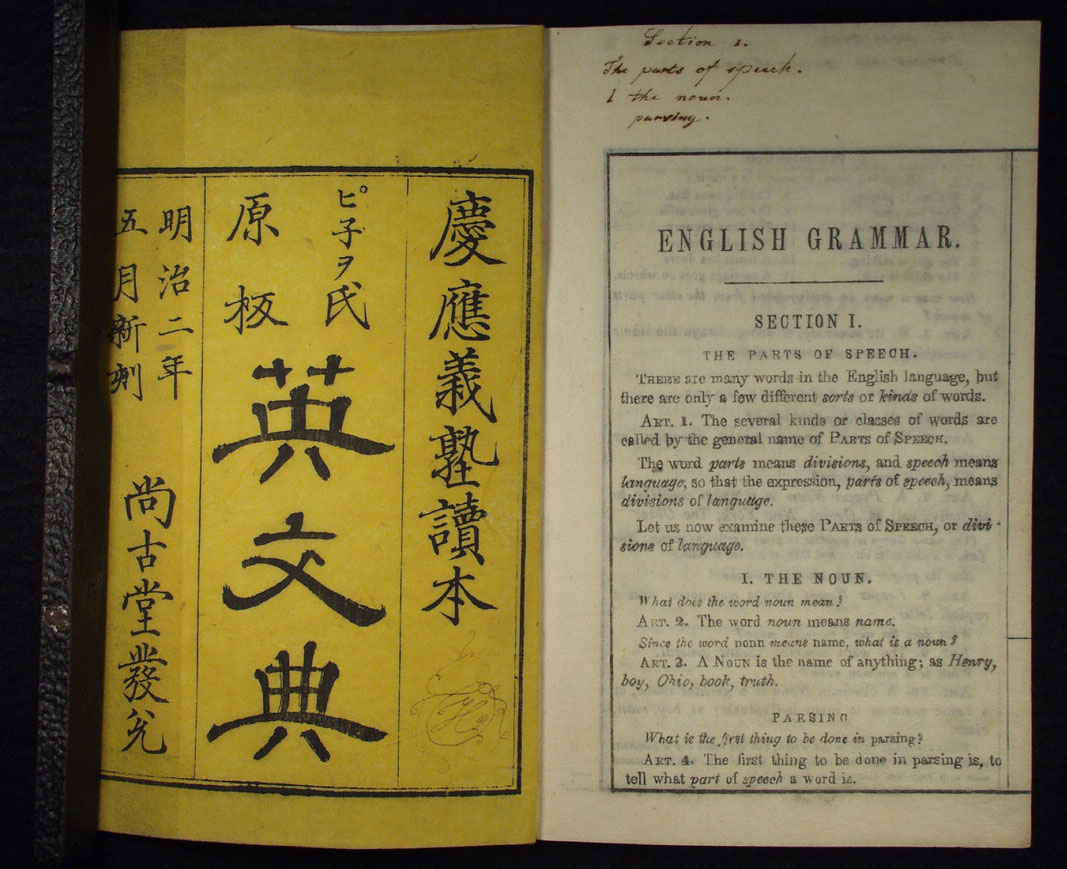 慶應義塾讀本
ピ子ヲ氏
原板
英文典
明治二年
五月新刻
尚古堂發兌
Section 1.
The parts of speech.
1 the noun.
parsing.
ENGLISH GRAMMAR.
SECTION I.
THE PARTS OF SPEECH.
THERE are many words in the English language, but
there are only a few different sorts or kinds of words.
ART. 1. The several kinds or classes of words are
called by the general name of PARTS OF SPEECH.
The word parts means divisions, and speech means
language, so that the expression, parts of speech, means
divisions of language.
Let us now examine these PARTS OF SPEECH, or divi-
sions of language.
I. THE NOUN.
What does the word noun mean?
ART. 2. The word noun means name.
Since the word nonn means name, what is a noun?
ART. 3. A NOUN is the name of anything; as Henry,
boy, Ohio, book, truth.
PARSING
What is the first thing to be done in parsing?
ART. 4. The first thing to be done in parsing is, to
tell what part of speech a word is.